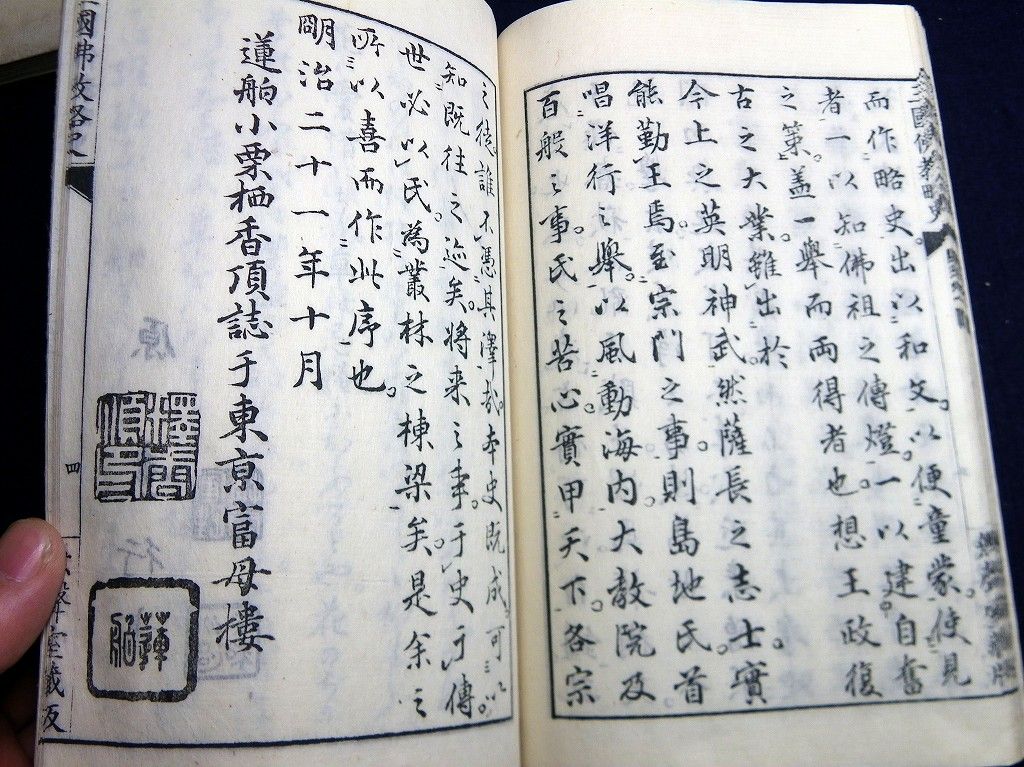 三國佛教略史
而作略史。出以和文。以便童蒙。使見
者一以知佛祖之傳燈。一以建自奮
之策。蓋一舉而兩得者也。想王政復
古之大業。雖出於
今上之英明神武。然薩長之志士。實
能勤王焉。至宗門之事。則島地氏。首
唱洋行之舉。以風動海内。大教院及
百般之事。氏之苦心。實甲天下。各宗
之徒。誰不憑其澤哉。本史既成。可以
知既往之迹矣。將来之事。于史可傳。
世必以氏為叢林之棟梁矣。是余之
所以喜而作此序也。
明治二十一年十月
蓮舶小栗栖香頂誌于東亰富母樓
蓮舶
國佛教略史
四